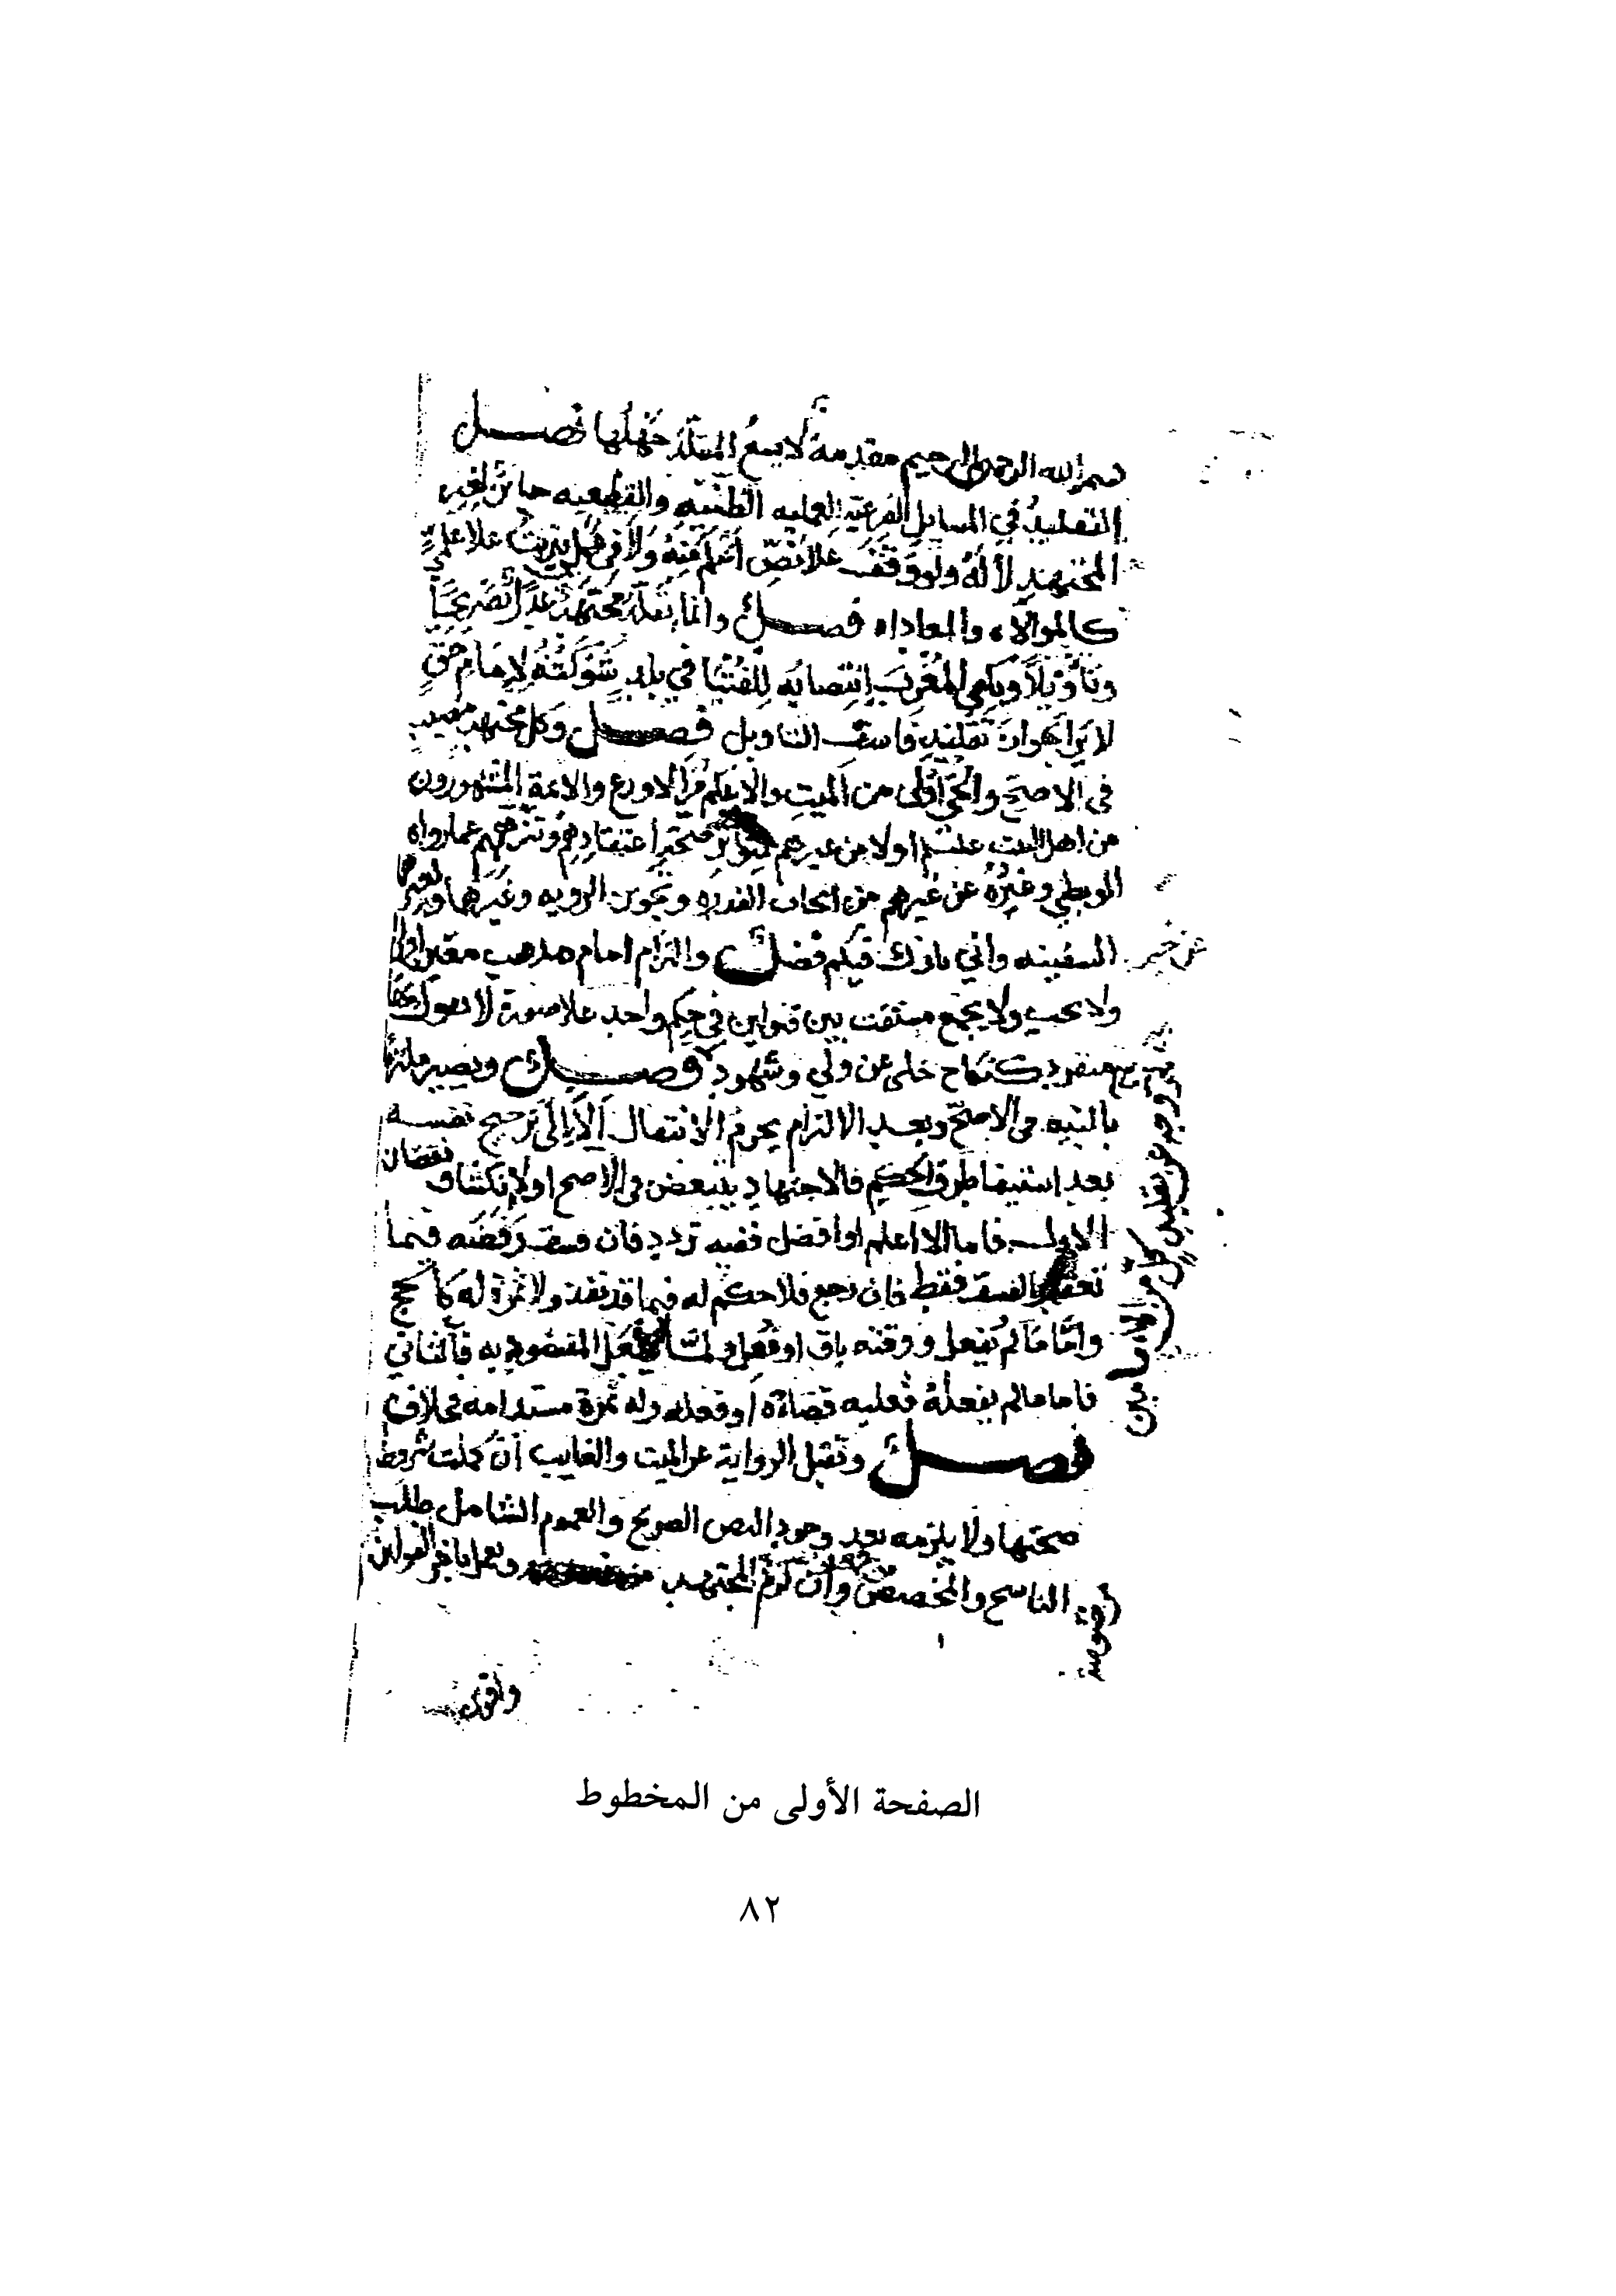 بسم الله الرحمن الرحيم مقدمة لا يسع المقلد جهلها فصل
التقليد في المسايل الفرعية العملية الظنيه والقطعيه جايز لغير
المجتهد لا له ولو وقف على نص أعلم منه ولا في عملي يترتب على علمي
كالموالاه والمعاداه فصل وانما يقلد مجتهد عدل تصريحا
وتأويلا ويكفي المغرب انتصابه للفتيا في بلد شوكته لإمام حق
لا يرى جواز تقليد فاسق التاويل فصل وكل مجتهد مصيب
في الاصح والحي أولى من الميت والأعلم من الاورع والائمة المشهورون
من اهل البيت عليهم اولا من غيرهم لتواتر صحة اعتقادهم وتنزههم عما رواه
البويطي وغيره عن غيرهم من ايجاب القدره وتجويز الرويه وغيرهما ولخبر
السفينه واني تارك فيكم فصل والتزام امام مذهب معين اولا
ولا يجب ولا يجمع مستفت بين قولين في حكم واحد على صورة لا يقول بها
منفرد كنكاح خلى عن ولي وشهود فصل ويصير ملتزما
بالنيه في الاصح وبعد الالتزام يحرم الانتقال الا الى ترجيح نفسه
بعد استيفا طرق الحكم فالاجتهاد يتبعض في الاصح او لانكشاف نقصان
الاول فاما الا اعلم او افضل ففيه تردد فان فسق رفضه فيما
تعقب الفسق فقط فان رجع فلا حكم له فيما قد نفذ ولا ثمرة له كالحج
وامّا ما لم يفعل ووقته باق او فعل ولما يفعل المقصود به فالثاني
فاما ما لم يفعله فعليه قضاؤه او فعله وله ثمرة مستدامه فخلاف
فصل وتقبل الرواية عن الميت والغايب ان كملت شروط
صحتها ولا يلزمه بعد وجود النص الصريح والعموم الشامل طلب
الناسخ والمخصص وان لزم المجتهد ويعمل باخر القولين
واقوى
الصفحة الأولى من المخطوط
٨٢